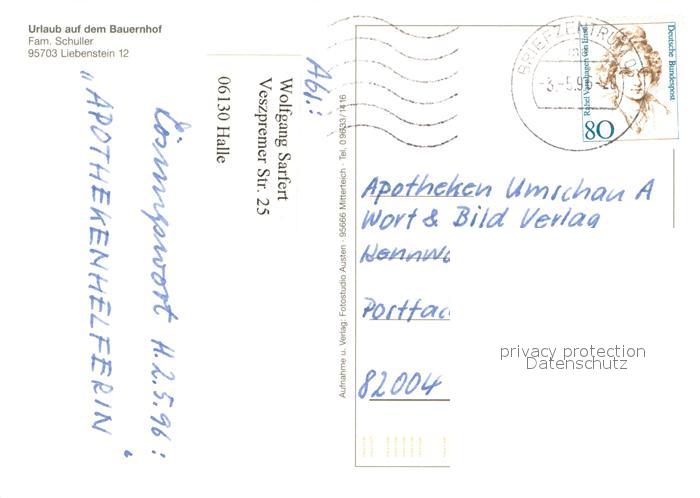 Urlaub auf dem Bauernhof
Fam. Schuller
95703 Liebenstein 12
Abs.:
Wolfgang Sarfert
Veszpremer Str. 25
06130 Halle
Lösungswort H. 2.5.96:
"APOTHEKENHELFERIN"
Aufnahme u. Verlag: Fotostudio Austen · 95666 Mitterteich · Tel. 09633/1416
BRIEFZENTRUM
80
Rahel Varnhagen von Ense
Deutsche Bundespost
Apotheken Umschau A
Wort & Bild Verlag
82004
privacy protection
Datenschutz